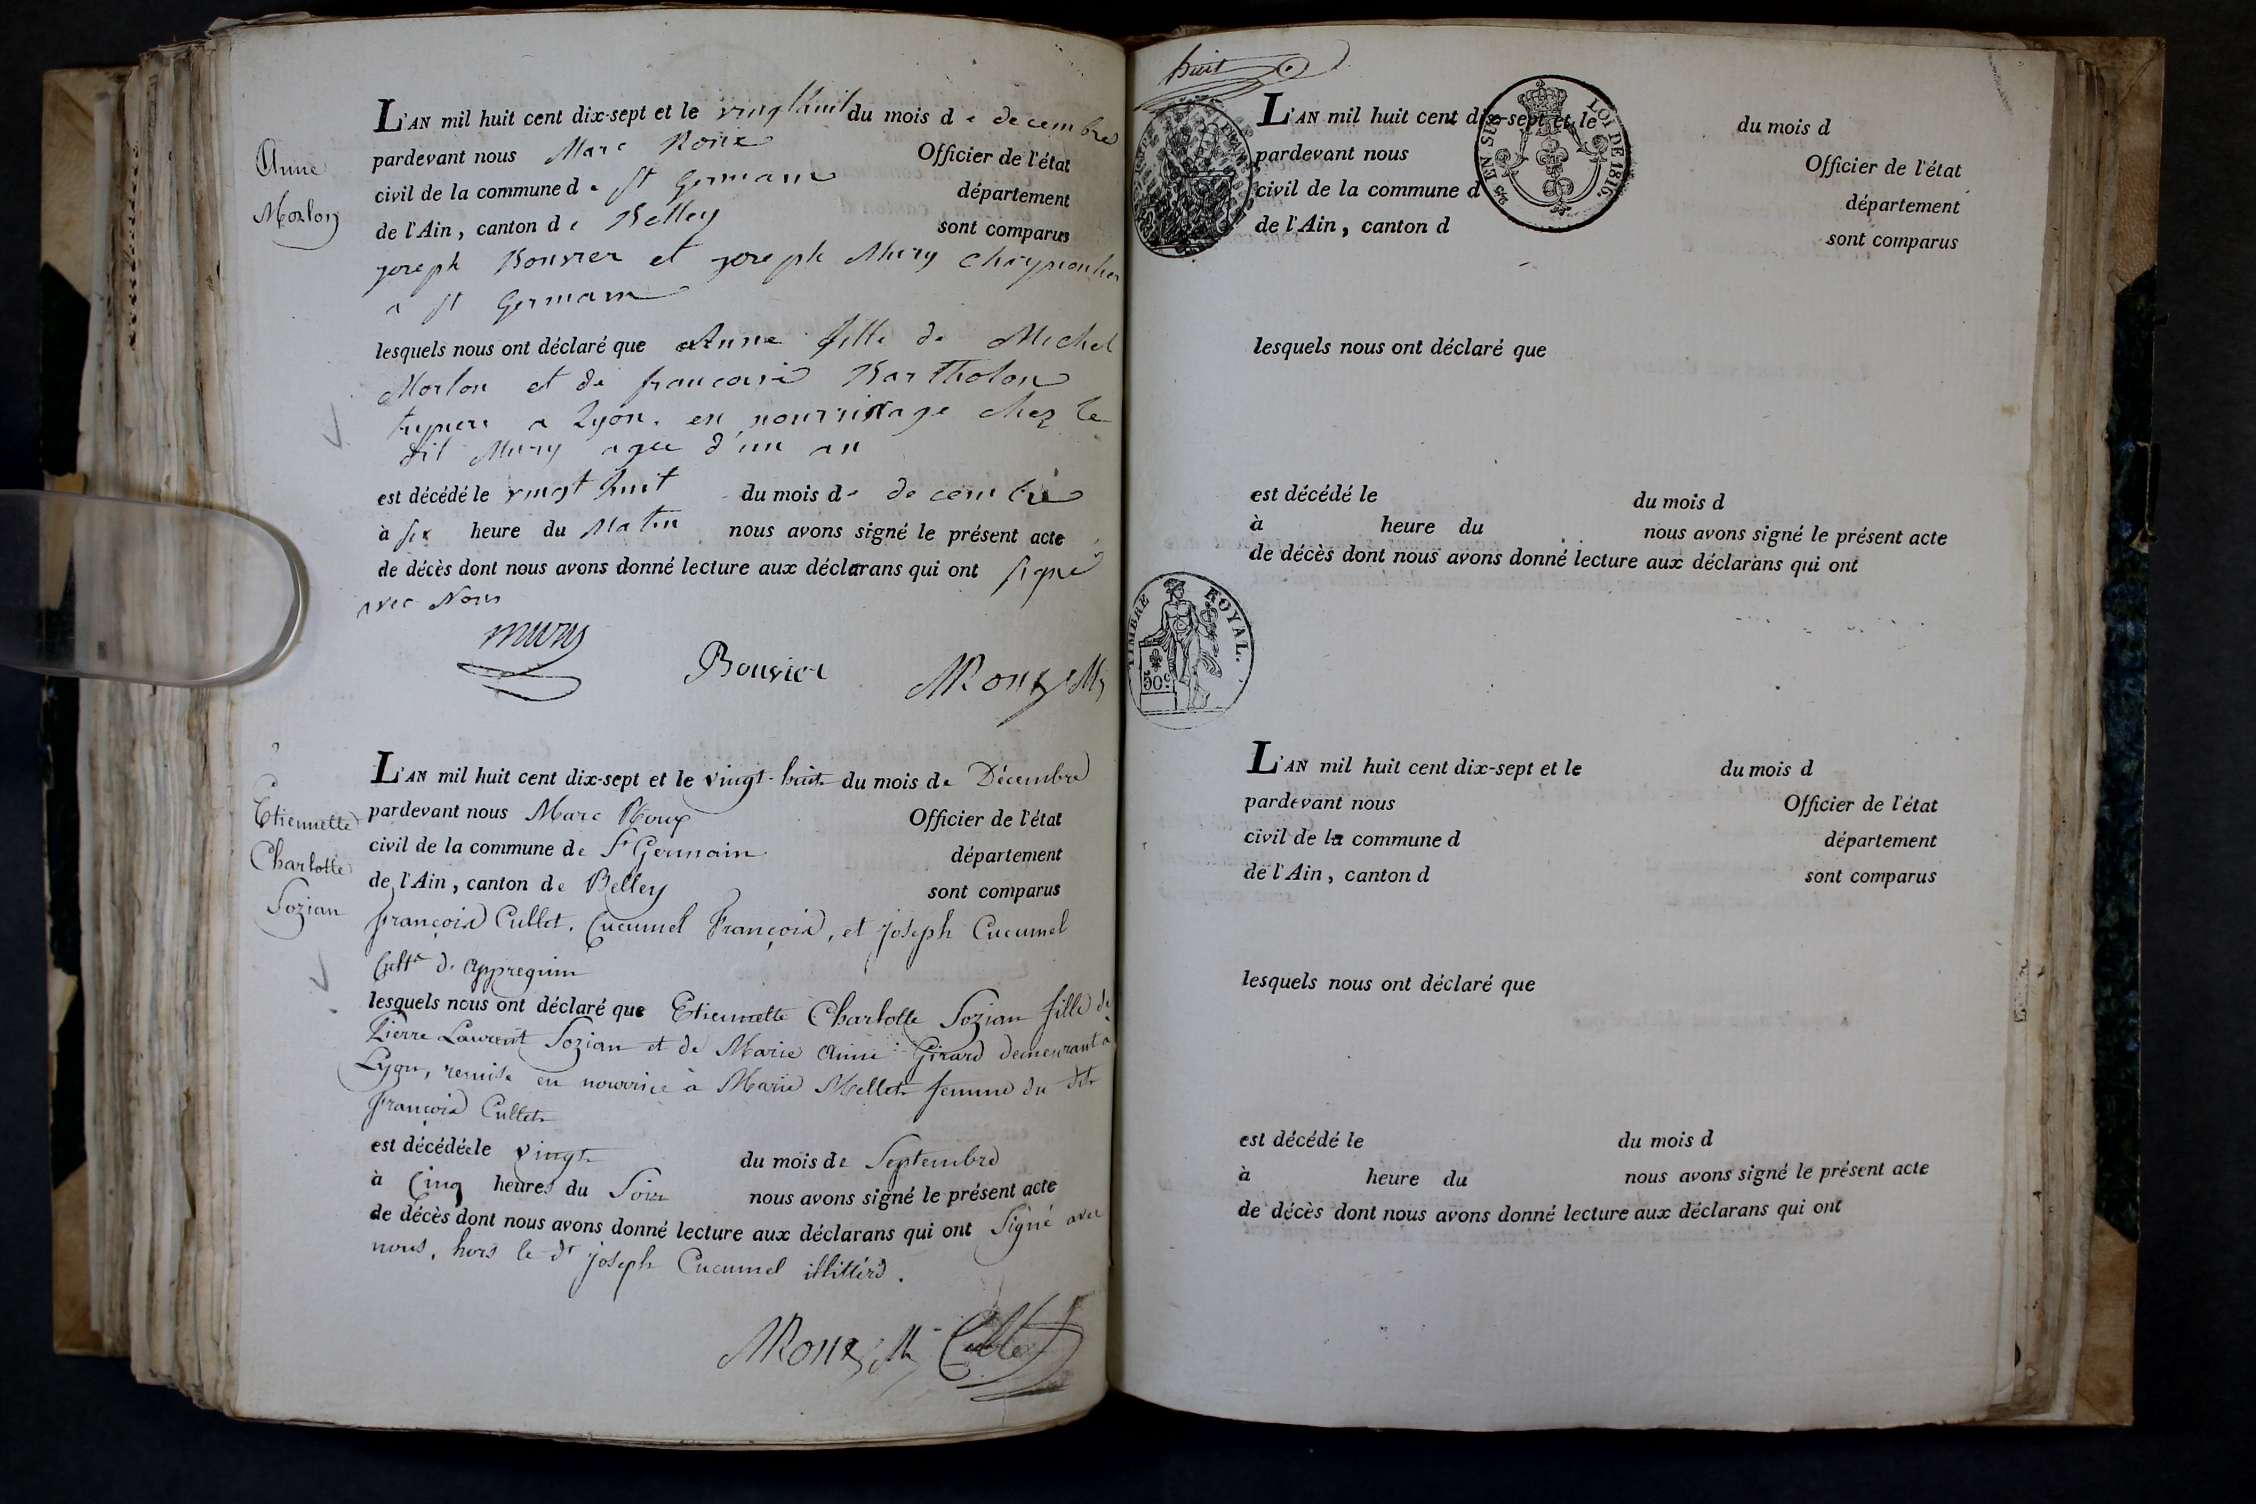 Anne
Morlon
L'AN mil huit cent dix-sept et le vingt huit du mois de decembre
pardevant nous Marc Roux Officier de l'état
civil de la commune de St Germain département
de l'Ain, canton de Belley sont comparus
joseph Bouvier et joseph Mury
a St Germain
lesquels nous ont déclaré que Anne fille de Michel
Morlon et de francoise Bartholon
a Lyon. en nourrissage chez le
dit Mury agee d'un an
est décédé le vingt huit du mois de decembre
à six heure du Matin nous avons signé le présent acte
de décès dont nous avons donné lecture aux déclarans qui ont signé
avec Nous
mury
Bouvier
MRoux
Etiennette
Charlotte
Sozian
L'AN mil huit cent dix-sept et le vingt-huit du mois de Décembre
pardevant nous Marc Roux Officier de l'état
civil de la commune de St Germain département
de l'Ain, canton de Belley sont comparus
François Cullet, Cucumel François, et joseph Cucumel
lesquels nous ont déclaré que Etiennette Charlotte Sozian fille de
Pierre Laurent Sozian et de Marie Anne Girard demeurant à
Lyon, remise en nourrice à Marie Mellet femme du dit
François Cullet
est décédée le vingt du mois de Septembre
à Cinq heures du Soir nous avons signé le présent acte
de décès dont nous avons donné lecture aux déclarans qui ont Signé avec
nous, hors le dt joseph Cucumel illittéré.
MRoux Cullet
huit
L'AN mil huit cent dix-sept et le du mois d
pardevant nous Officier de l'état
civil de la commune d département
de l'Ain, canton d sont comparus
EN SUS
LOI DE 1816.
lesquels nous ont déclaré que
est décédé le du mois d
à heure du nous avons signé le présent acte
de décès dont nous avons donné lecture aux déclarans qui ont
TIMBRE ROYAL.
50c
L'AN mil huit cent dix-sept et le du mois d
pardevant nous Officier de l'état
civil de la commune d département
de l'Ain, canton d sont comparus
lesquels nous ont déclaré que
est décédé le du mois d
à heure du nous avons signé le présent acte
de décès dont nous avons donné lecture aux déclarans qui ont